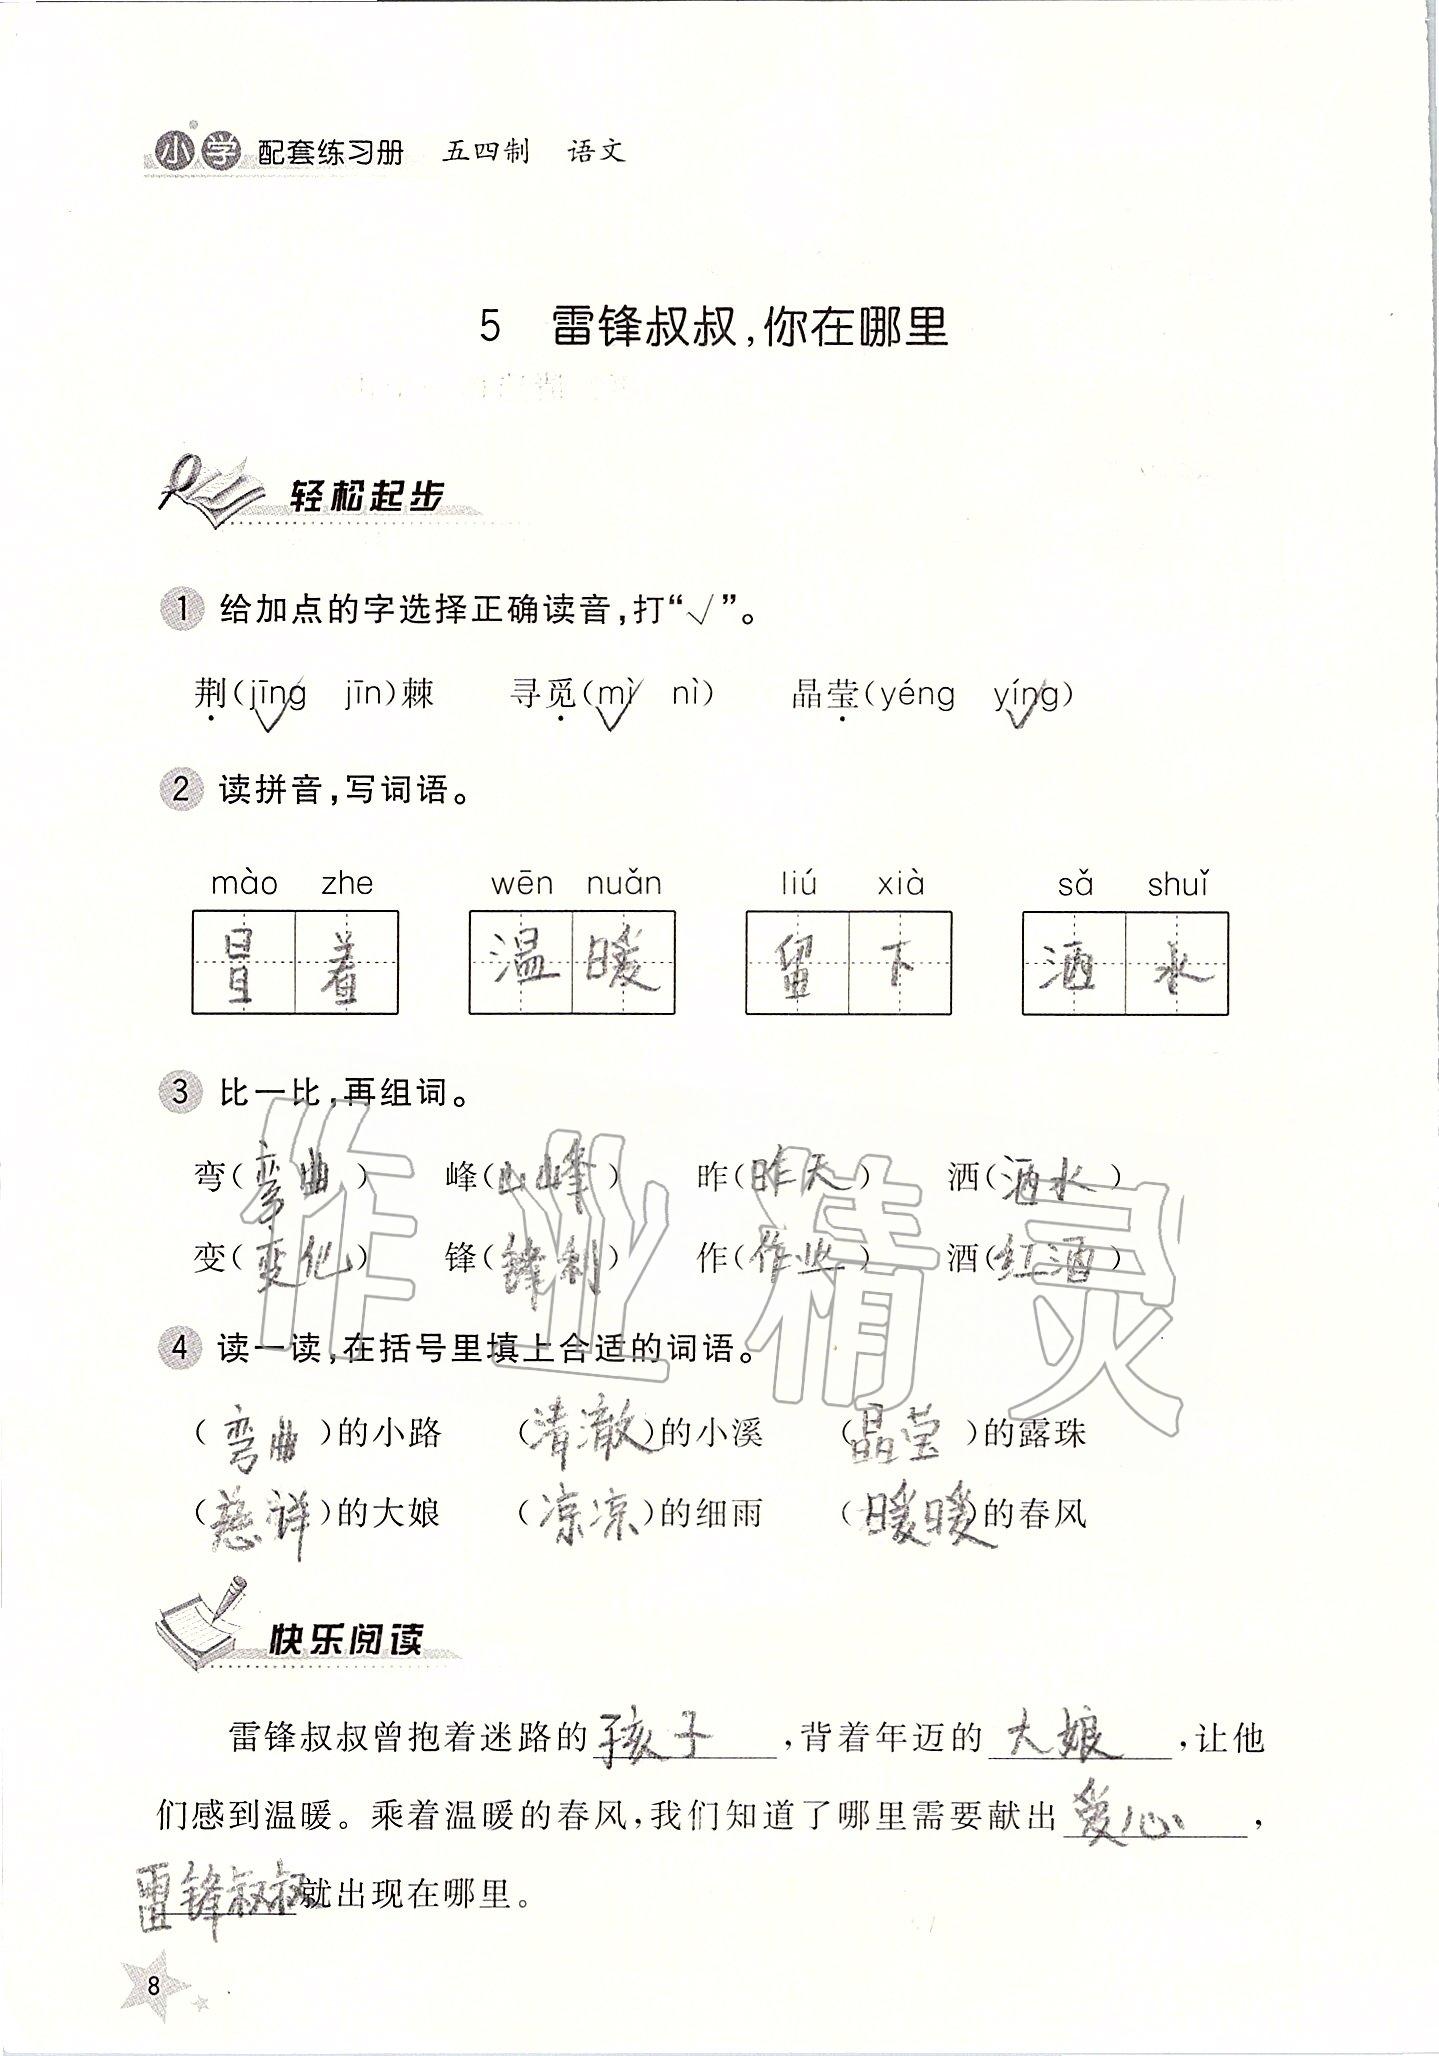 小学 配套练习册 五四制 语文
5 雷锋叔叔,你在哪里
轻松起步
1 给加点的字选择正确读音,打“√”。
荆(jīng jīn)棘 寻觅(mì nì) 晶莹(yéng yíng)
2 读拼音,写词语。
mào zhe wēn nuǎn liú xià sǎ shuǐ
冒着 温暖 留下 洒水
3 比一比,再组词。
弯(弯曲) 峰(山峰) 昨(昨天) 洒(洒水)
变(变化) 锋(锋利) 作(作业) 酒(红酒)
4 读一读,在括号里填上合适的词语。
(弯曲)的小路 (清澈)的小溪 (晶莹)的露珠
(慈祥)的大娘 (凉凉)的细雨 (暖暖)的春风
快乐阅读
雷锋叔叔曾抱着迷路的孩子,背着年迈的大娘,让他
们感到温暖。乘着温暖的春风,我们知道了哪里需要献出爱心,
雷锋叔叔就出现在哪里。
8
作业精灵